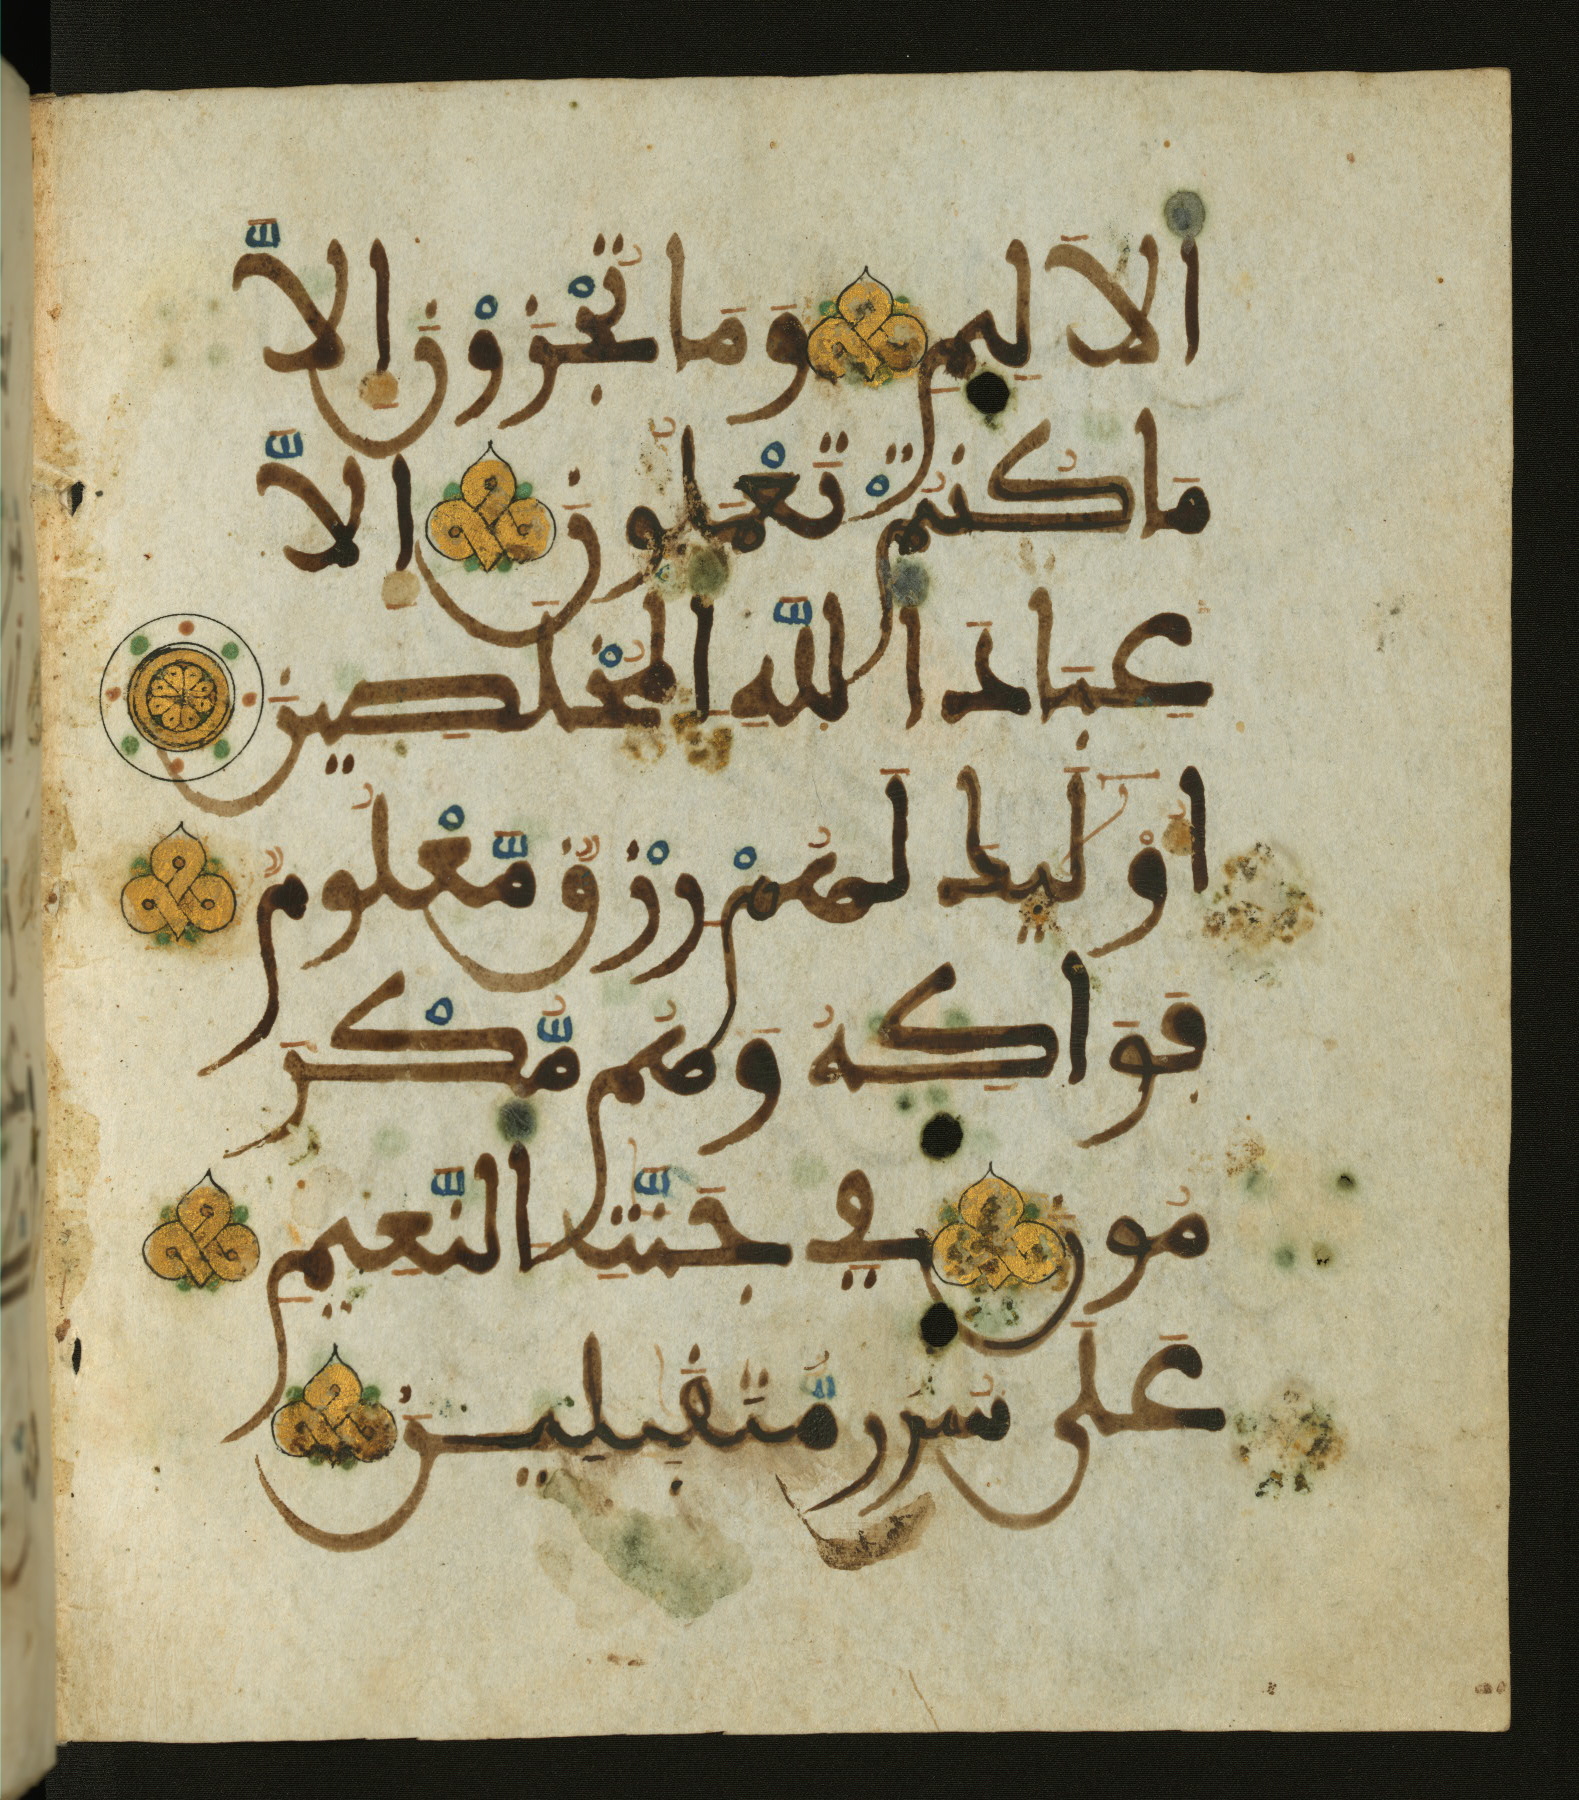 اَ۬لَالِيمِ وَمَا تُجْزَوْنَ إِلَّا
مَا كُنتُمْ تَعْمَلُونَ إِلَّا
عِبَادَ اَ۬للَّهِ اِ۬لْمُخْلَصِينَ
أُوْلَٰٓئِكَ لَهُمْ رِزْقٌ مَّعْلُومٌ
فَوَاكِهُ وَهُم مُّكْرَ
مُونَ فِي جَنَّٰتِ اِ۬لنَّعِيمِ
عَلَىٰ سُرُرٍ مُّتَقَٰبِلِينَ